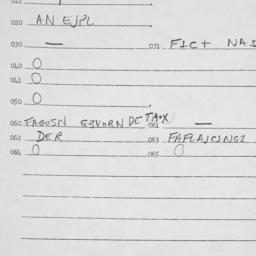 011
020 AN EJPL
030 — 031 FICT NAS
040 0
041 0
050 0
060 FAGOSN G3VORN DE TAOX 061 —
062 DER 063 FAFLAJCJNGI
064 0 065 0